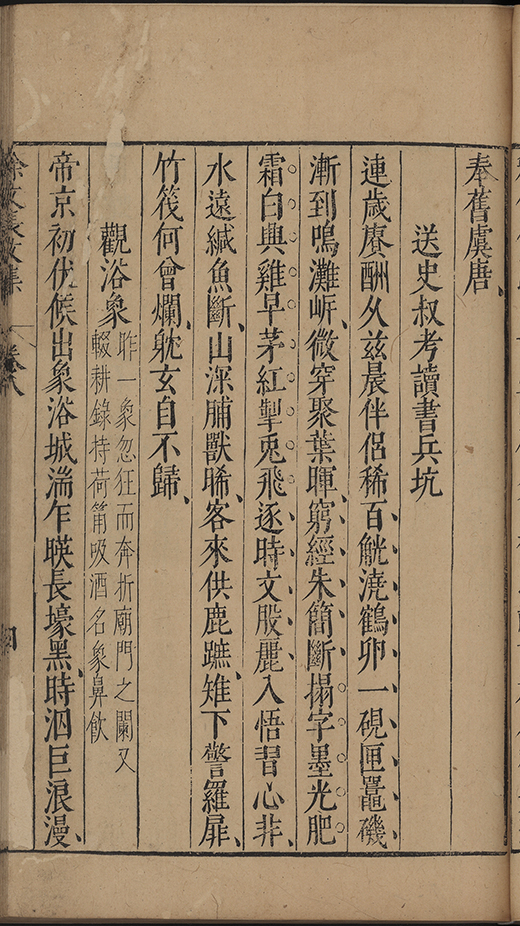 奉舊虞唐、
送史叔考讀書兵坑
連歲賡酬久兹晨伴侶稀百觥澆鶴卵一硯匣鼉磯、
漸到鳴灘㟁、微穿聚葉暉、窮經朱簡斷搨字墨光肥
霜白與雞早茅紅掣兎飛逐時文股麗入悟習心非、
水遠緘魚斷、山深脯獸晞、客來供鹿蹠、雉下警羅扉、
竹筏何曾爛、躭玄自不歸、
觀浴象 昨一象忽狂而奔折廟門之闌又
輟耕錄持荷筩吸酒名象鼻飲
帝京初伏候出象浴城湍乍暎長壕黑、時泅巨浪漫、
卷八